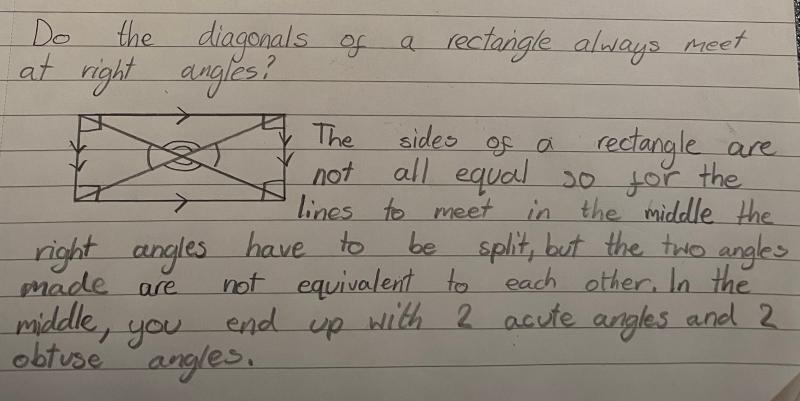 Do the diagonals of a rectangle always meet
at right angles?
The sides of a rectangle are
not all equal so for the
lines to meet in the middle the
right angles have to be split, but the two angles
made are not equivalent to each other. In the
middle, you end up with 2 acute angles and 2
obtuse angles.